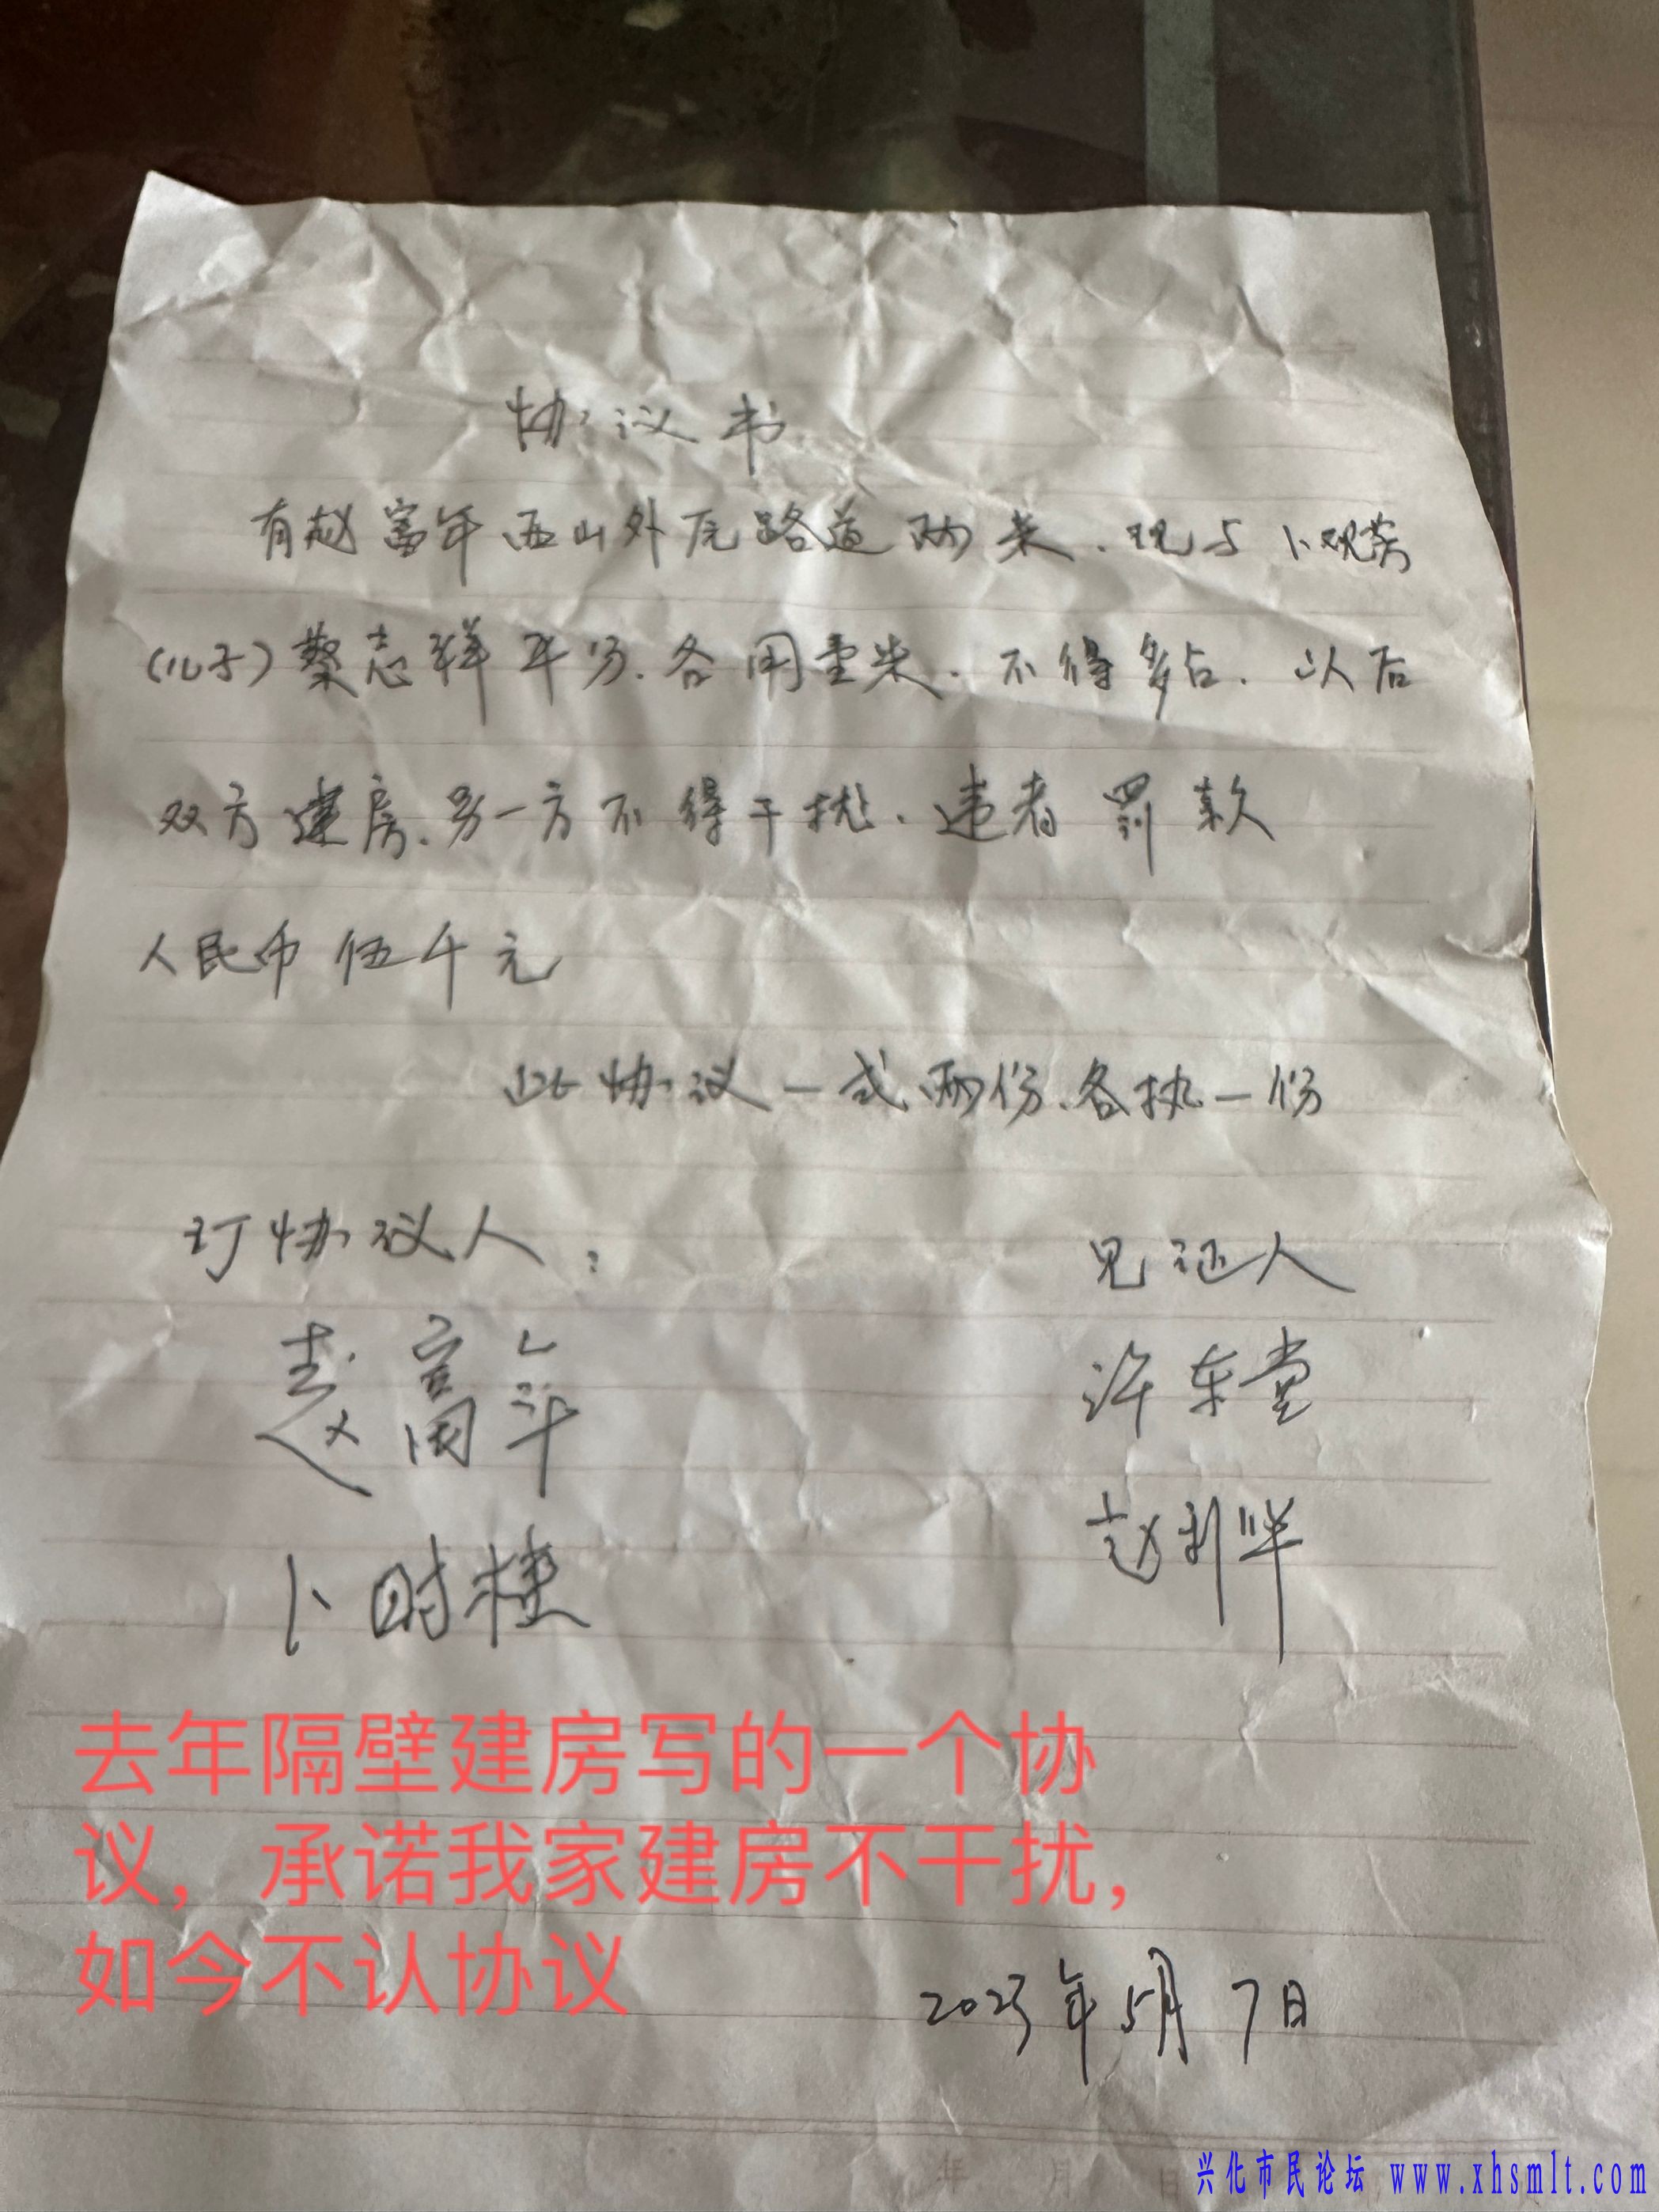 协议书
有赵富年西山外尾路道两米.现与卜观芳
(儿子)蔡志祥平分.各用壹米.不得多占.以后
双方建房.另一方不得干扰.违者罚款
人民币伍千元
此协议一式两份.各执一份
订协议人: 见证人
赵富年 许东堂
卜时桂 赵利华
去年隔壁建房写的一个协
议，承诺我家建房不干扰，
如今不认协议
2023年5月7日
年 月 日
兴化市民论坛 www.xhsmlt.com